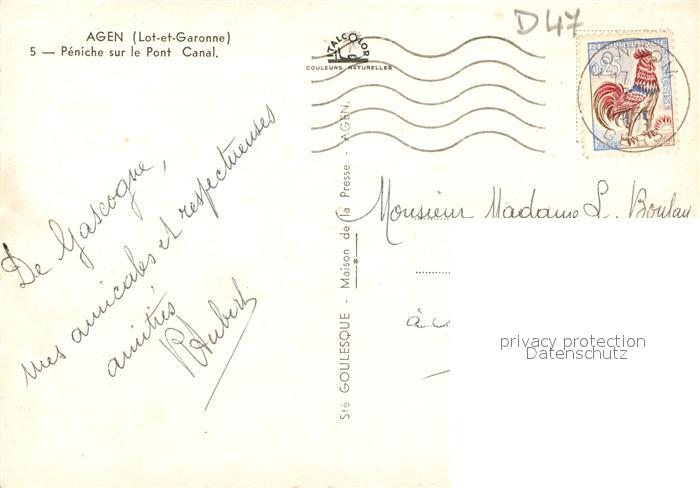 AGEN (Lot-et-Garonne)
5 — Péniche sur le Pont Canal.
ITALCOLOR
COULEURS NATURELLES
D47
De Gascogne,
mes amicales et respectueuses
amitiés
R Hubert
Sté GOULESQUE - Maison de la Presse - AGEN.
Monsieur Madame L. Boulau
à
privacy protection
Datenschutz
CONDOM
GERS